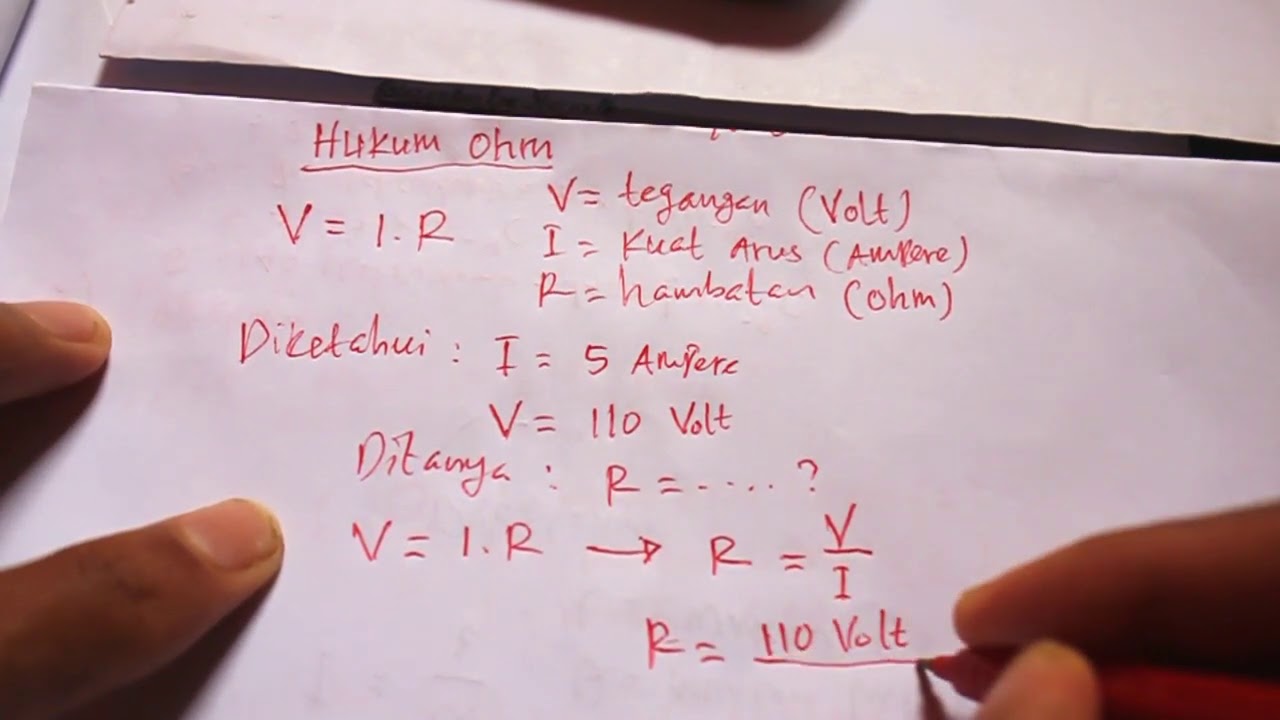 Hukum Ohm
V = I . R
V = tegangan (Volt)
I = Kuat Arus (Ampere)
R = hambatan (ohm)
Diketahui : I = 5 Ampere
V = 110 Volt
Ditanya : R = ..... ?
V = I . R → R = V / I
R = 110 Volt